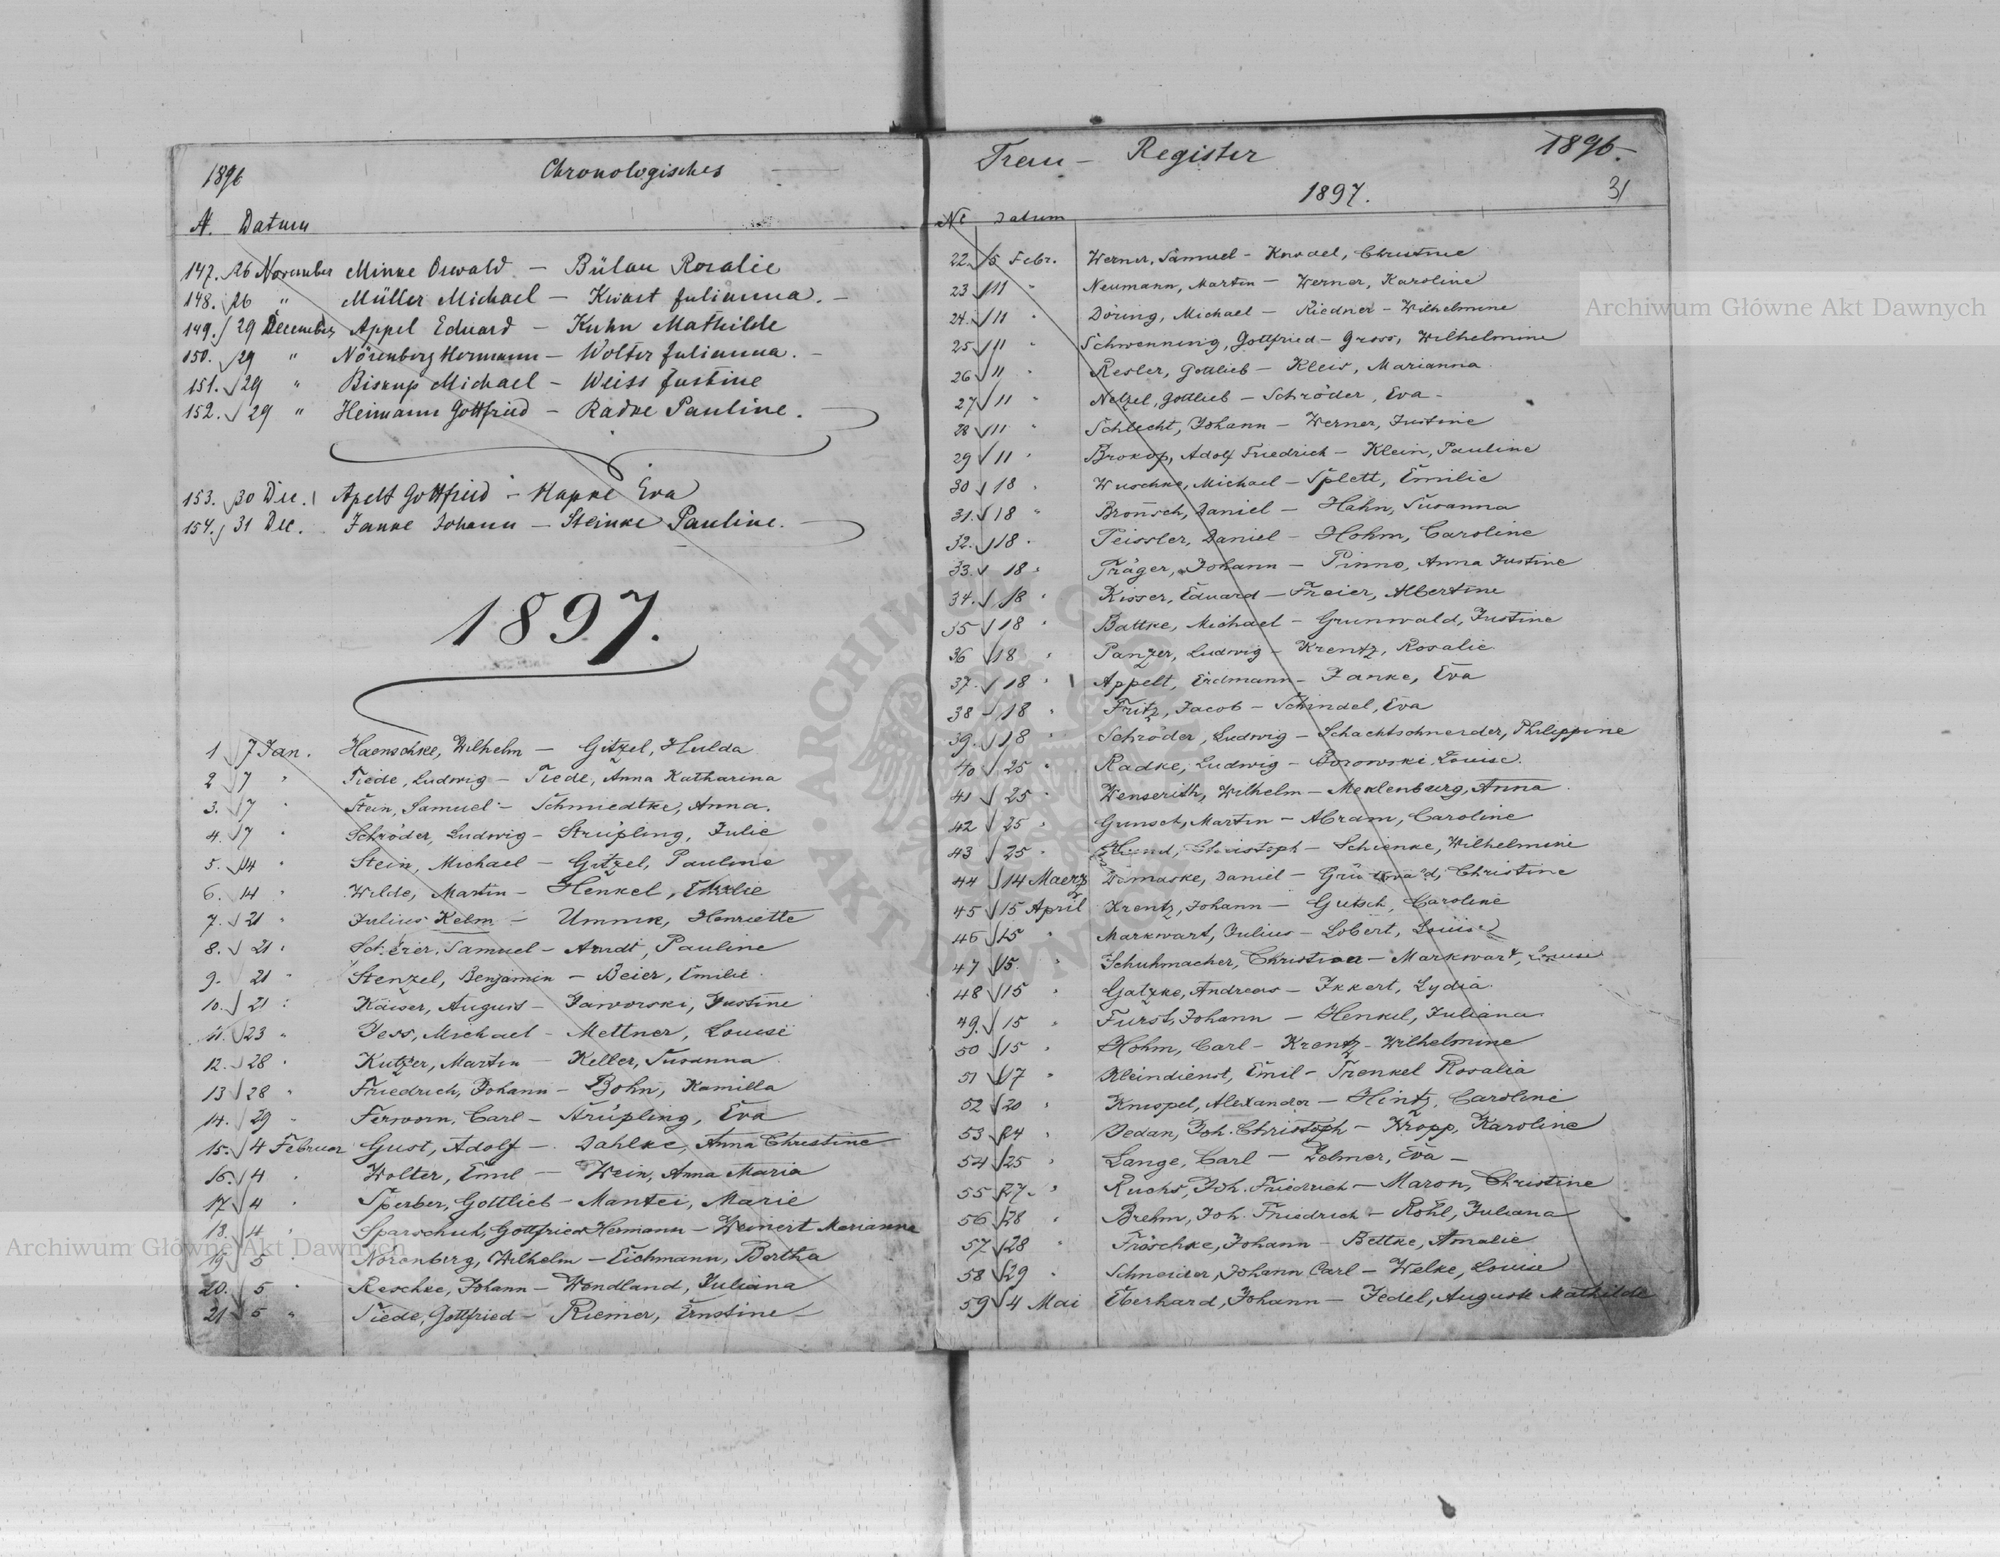 1896 Chronologisches
N. Datum
147. 26 November Minke Oswald – Bülau Rosalie
148. 26 " Müller Michael – Kwast Julianna. –
149. 29 December Appel Eduard – Kuhn Mathilde
150. 29 " Nörenberg Hermann – Wolter Julianna. –
151. 29 " Biskup Michael – Weiss Justine
152. 29 " Heimann Gottfried – Radke Pauline. –
153. 30 Dec. Apelt Gottfried – Hapke Eva
154. 31 Dec. Janke Johann – Steinke Pauline. –
1897.
1 7 Jan. Haenschke, Wilhelm – Gitzel, Hulda
2 7 " Tiede, Ludwig – Tiede, Anna Katharina
3. 7 " Stein, Samuel – Schmiedtke, Anna.
4. 7 " Schröder, Ludwig – Strüpling, Julie
5. 14 " Stein, Michael – Gitzel, Pauline
6. 14 " Wilde, Martin – Henkel, Emilie
7. 21 " Julius Kelm – Ummik, Henriette
8. 21 " Scherer, Samuel – Arndt, Pauline
9. 21 " Stenzel, Benjamin – Beier, Emilie.
10. 21 " Käiser, August – Jaworski, Justine
11. 23 " Jess, Michael – Mettner, Louise
12. 28 " Kutzer, Martin – Keller, Susanna.
13 28 " Friedrich, Johann – Bohn, Kamilla
14. 29 " Ferworn, Carl – Strüpling, Eva
15. 4 Februar Gust, Adolf – Dahlke, Anna Christine
16. 4 " Wolter, Emil – Wein, Anna Maria
17 4 " Sperber, Gottlieb – Mantei, Marie
18. 4 " Sparschuh, Gottfried Hermann – Weinert Marianna
19 5 " Norenberg, Wilhelm – Eichmann, Bertha
20. 5 " Reschke, Johann – Wendland, Juliana
21 5 " Tiede, Gottfried – Riemer, Ernstine –
Trau – Register 1896.
1897. 31
No Datum
22. 5 Febr. Werner, Samuel – Knodel, Christine
23 11 " Neumann, Martin – Werner, Karoline
24. 11 " Döring, Michael – Riedner – Wilhelmine
25 11 " Schwenning, Gottfried – Gross, Wilhelmine
26 11 " Resler, Gottlieb – Kleis, Marianna
27 11 " Netzel, Gottlieb – Schröder, Eva –
28 11 " Schlecht, Johann – Werner, Justine
29 11 " Brokop, Adolf Friedrich – Klein, Pauline
30 18 " Wuschke, Michael – Splett, Emilie
31. 18 " Bronsch, Daniel – Hahn, Susanna
32. 18 " Peissler, Daniel – Hohm, Caroline
33. 18 " Träger, Johann – Pinno, Anna Justine
34. 18 " Kisser, Eduard – Freier, Albertine
35 18 " Battke, Michael – Grunwald, Justine
36 18 " Panzer, Ludwig – Krentz, Rosalie
37. 18 " Appelt, Erdmann – Janke, Eva
38 18 " Fritz, Jacob – Schindel, Eva
39. 18 " Schröder, Ludwig – Schachtschneider, Philippine
40 25 " Radke, Ludwig – Borowski, Louise.
41 25 " Wenserith, Wilhelm – Meklenburg, Anna
42 25 " Gunsch, Martin – Abram, Caroline
43 25 " Christoph – Schienke, Wilhelmine
44 14 Maerz Domaske, Daniel – Christine
45 15 April Krentz, Johann – Gutsch, Caroline
46 15 " Markwart, Julius – Lobert, Louise
47 15. " Schuhmacher, Christian – Markwart, Louise
48 15 " Gatzke, Andreas – Ikkert, Lydia.
49. 15 " Furst, Johann – Henkel, Juliana.
50 15 " Hohm, Carl – Krentz – Wilhelmine
51 17 " Kleindienst, Emil – Trenkel Rosalia
52 20 " Knispel, Alexander – Hintz, Caroline
53 24 " Dedan, Joh. Christoph – Kropp, Karoline
54 25 " Lange, Carl – Zelmer, Eva –
55 27. " Ruchs, Joh. Friedrich – Maron, Christine
56 28 " Brehm, Joh. Friedrich – Röhl, Juliana
57 28 " Fröschke, Johann – Bettke, Amalie
58 29 " Schneider, Johann Carl – Welke, Louise
59 4 Mai Eberhard, Johann – Jedel, Auguste Mathilde
Archiwum Główne Akt Dawnych
Archiwum Główne Akt Dawnych